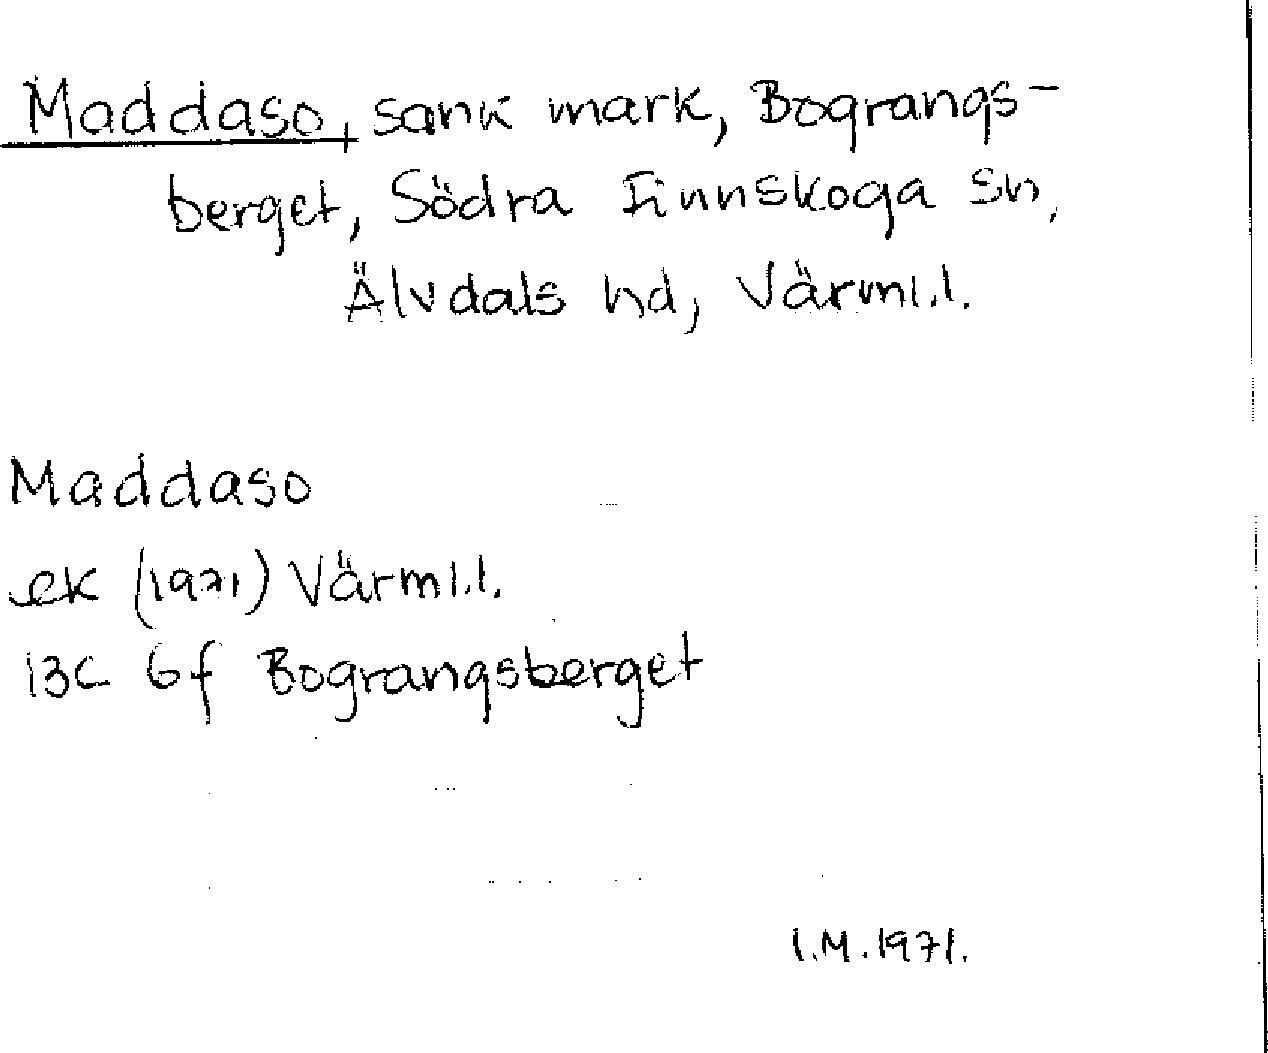 Maddaso, sank mark, Bograngs-
berget, Södra Finnskoga sn,
Älvdals hd, Värml.l.
Maddaso
ek (1971) Värml.l.
13C 6f Bograngsberget
I.M.1971.